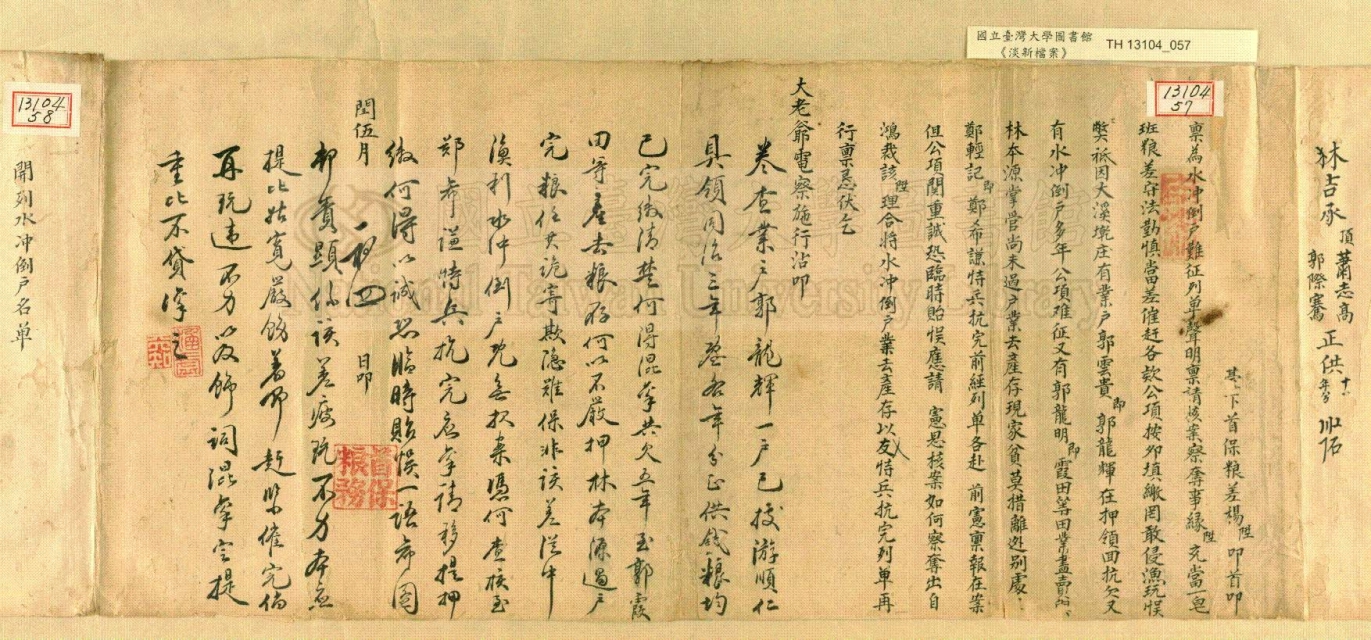 國立臺灣大學圖書館
《淡新檔案》
TH 13104_057
13104
57
林吉承 頂 蕭志高 郭際騫 正供
具下首保粮差楊陞叩首叩
禀為水冲倒戶難征列單聲明禀請核案察奪事緣陞充當一皂
班狼差守法勤慎當差催赶各欵公項按卯填繳罔敢侵漁玩悞
獘祗因大溪墘庄有業戶郭雲貴即郭龍輝在押領回抗欠又
有水冲倒戶多年公項难征又有郭龍明即霞田等田業盡賣
林本源掌管尚未過戶業去產存現家貧莫措離迯別處
鄭輕記即鄭希謙恃兵抗完前經列单各赴 前憲禀報在案
但公項関重誠恐臨時貽悞應請 憲恩核案如何察奪出自
鴻裁該陞理合將水冲倒戶業去產存以及恃兵抗完列单再
行禀忌伏乞
大老爺電察施行沾叩
卷查業戶郭龍輝一戶已據游順仁
具領同治三年
已完繳清楚何得混拿共欠五年至郭霞
田等產去粮存何以不嚴押林本源過戶
完粮任其詭寄欺隐難保非該差從中
漁利水冲倒戶既無报案憑何查核至
鄭希谦恃兵抗完应拿請移提押
繳何得以誠恐臨時貽悞一語希圖
卸責顯係該差疲玩不力本应
提比姑寬嚴飭着即赶紧催完倘
再玩违不力以及飾詞混拿定提
重比不貸凜之
閏伍月 日叩
首保
粮務
13104
58
開列水冲倒戶名单
國立臺灣大學圖書館
National Taiwan University Library